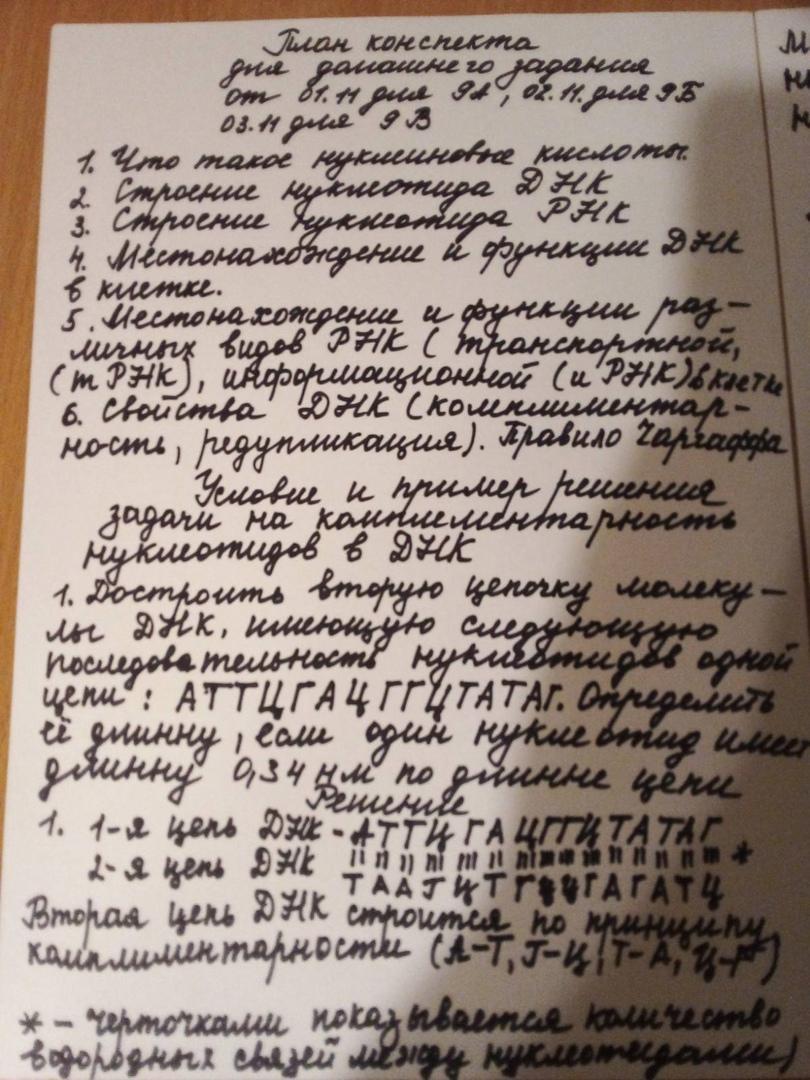 План конспекта
для домашнего задания
от 01.11 для 9А, 02.11. для 9Б
03.11 для 9В
1. Что такое нуклеиновые кислоты.
2. Строение нуклеотида ДНК
3. Строение нуклеотида РНК
4. Местонахождение и функции ДНК
в клетке.
5. Местонахождение и функции раз-
личных видов РНК (транспортной,
(тРНК), информационной (иРНК) в клетке
6. Свойства ДНК (комплиментар-
ность, редупликация). Правило Чаргаффа
Условие и пример решения
задачи на комплементарность
нуклеотидов в ДНК
1. Достроить вторую цепочку молеку-
лы ДНК, имеющую следующую
последовательность нуклеотидов одной
цепи: АТТЦГАЦГГЦТАТАГ. Определить
её длинну, если один нуклеотид имеет
длинну 0,34 нм по длинне цепи
Решение
1. 1-я цепь ДНК - АТТЦГАЦГГЦТАТАГ
2-я цепь ДНК *
ТААГЦТГЦЦГАГАТЦ
Вторая цепь ДНК строится по принципу
комплиментарности (А-Т, Г-Ц, Т-А, Ц-Г)
* - черточками показывается количество
водородных связей между нуклеотидами)